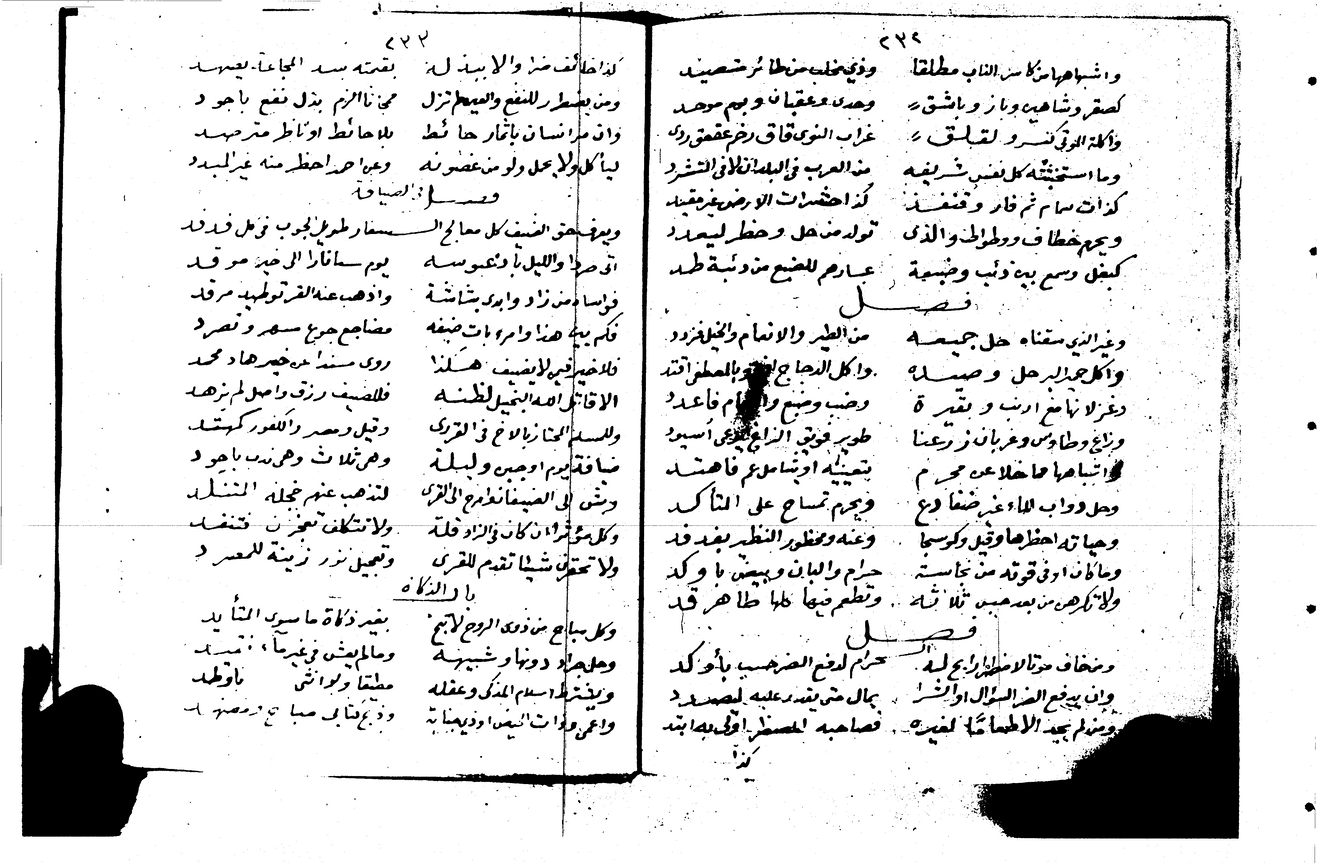 ٢٣٢
واشباهها مزكا من الناب مطلقا وذي مخلب من طائر متصيد
كصقر وشاهين وباز وباشق وحدى وعقبان وبوم موحد
واكلة الموتى كنسر ولقلق غراب النوى قاق رخم عقعق ردى
وما استخبثته كل نفس شريفه من العرب في البلدان لا في التشرد
كذات سمام ثم فار وقنفذ كذا حشرات الارض غير مقيد
ويحرم خطاف ووطواط والذى تولد من حل وحظر ليعدد
كبغل وسمع بين ذئب وضبعة عبارهم للضبع من ذئبة طد
فصل
وغير الذي سقناه حل جميعه من الطير والانعام والخيل فزدد
واكل حمير البر حل وصيده واكل الدجاج وبالمصطفى اقتد
وغزلانها مع ارنب وبقيرة وضب وضبع فاعدد
وزاغ وطاوس وغربان زرعنا طوير فويق الزاغ اسود
اشباهها مما خلا عن محرم بتعيينه او شامل عم فاهتد
وحل دواب الماء غير ضفادع ويحرم تمساح على المتأكد
وحياته احظرها وقيل وكوسجا وعنه ومحظور النظير بفدفد
وما كان اوفى قوته من نجاسة حرام والبان وبيض باوكد
ولا تكرهن من بعد حبس ثلاثة وتطعم فيها كلها طاهر قد
فصل
ومن خاف موتا لاضطرار ابح له حرام لدفع الضر حسب بأوكد
وان يدفع الضر السؤال او الشرا بمال حتى يقدر عليه ليصدد
ومن لم يجد الا طعاما لغيره فصاحبه المضطر اولى به ابتد
كذا
٢٣٣
كذا خائف ضرا والا يبذله بقيمته سد المجاعة يعتهد
ومن يضطر للنفع والعين لم تزل مجانا الزم بذل نفع باجود
وان مر انسان باثمار حائط بلا حائط او ناظر مترصد
ليأكل ولا يحمل ولو من غصونه وعن احمد احظر منه غير المبدد
فصل في الضيافة
ويعرف حق الضيف كل معالج السفار طويل الجوب في كل فدفد
اتى صردا والليل باد عبوسه يوم سنا نارا الى خير موقد
فواساه من زاد وابدى بشاشة واذهب عنه القر توطيد مرقد
فكم بين هذا وامرء بات ضيفه مضاجع جوع سهر وتصرد
فلا خير فيمن لا يضيف هكذا روى مسندا عن خير هاد محمد
الا قاتل الله البخيل لظنه فللضيف رزق واصل لم يزهد
وللمسلم المجتاز بالاخ في القرى وقيل ومصر والكفور كمهتد
ضيافة يوم اوجبن وليلة وهي ثلاث وهي ندب باجود
وبش الى الضيفان وامرح الى القرى لتذهب عنهم خجلة المتنكد
وكل مؤثرا ان كان في الزاد قلة ولا تتكلف تعجزن فتنفد
ولا تحقرن شيئا تقدم للقرى وتعجيل نزر زينة للمصرد
باب الذكاة
وكل مباح من ذوى الروح لا تبح بغير ذكاة ما سوى المتأيد
وحل جراد دونها وشبيهه وما لم يعش في غير ماء
ويشترط اسلام المذكى وعقله مطيقا ولو انثى باوطد
واعمى وذات الحيض او ذي جنابة وذبح كتابي مباح ومعتهد